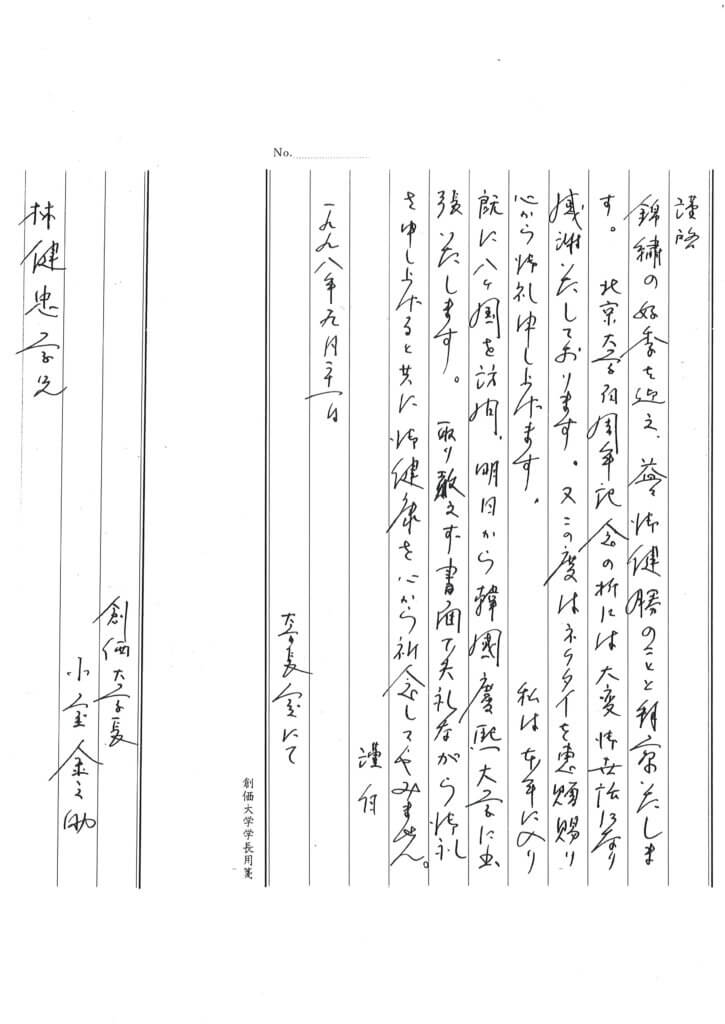 No.
謹啓
錦繍の好季を迎え、益々御健勝のことと拝察致しま
す。 北京大学百周年記念の折には大変御世話になり
感謝致しております。又この度はネクタイを恵贈賜り
心から御礼申し上げます。 私は本年に入り
既に八ヶ国を訪問、明日から韓國慶熙大学に出
張致します。 取り敢えず書面で失礼ながら御礼
を申し上げると共に御健康を心から祈念してやみません。
謹白
一九九八年九月二十一日
大学長室にて
創価大学学長用箋
創価大学長
小室金之助
林健忠学兄